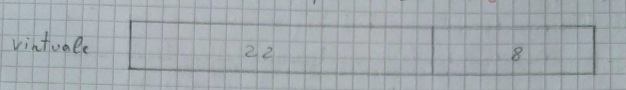 virtuale 22 8